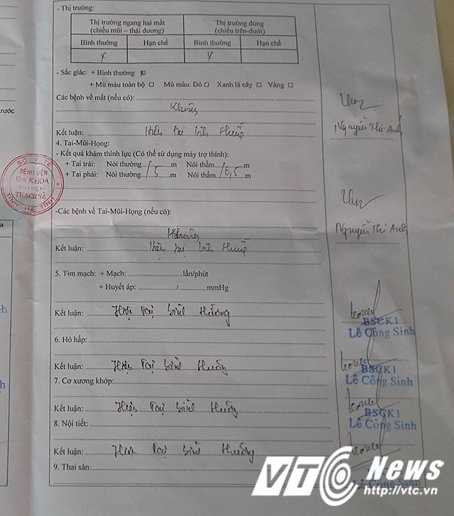 - Thị trường:
Thị trường ngang hai mắt
(chiều mũi – thái dương)
Thị trường đứng
(chiều trên-dưới)
Bình thường Hạn chế Bình thường Hạn chế
x v
- Sắc giác: + Bình thường
+ Mù màu toàn bộ □ Mù màu: Đỏ □ Xanh lá cây □ Vàng □
Các bệnh về mắt (nếu có):
Không
Kết luận: Hiện tại bình thường
Nguyễn Thị Anh
4. Tai-Mũi-Họng:
- Kết quả khám thính lực (Có thể sử dụng máy trợ thính):
+ Tai trái: Nói thường 5 m Nói thầm 0,5 m
+ Tai phải: Nói thường 5 m Nói thầm 0,5 m
BỆNH VIỆN
ĐA KHOA
THẠCH HÀ
-Các bệnh về Tai-Mũi-Họng (nếu có):
Không
Nguyễn Thị Anh
Kết luận: Hiện tại bình thường
5. Tim mạch: + Mạch: lần/phút
+ Huyết áp: / mmHg
Kết luận: Hiện tại bình thường
BSCK1
Lê Công Sinh
6. Hô hấp:
Kết luận: Hiện tại bình thường
BSCK1
Lê Công Sinh
7. Cơ xương khớp:
Kết luận: Hiện tại bình thường
BSCK1
Lê Công Sinh
8. Nội tiết:
Kết luận: Hiện tại bình thường
9. Thai sản:
Lê Công Sinh
VTC News
http://vtc.vn